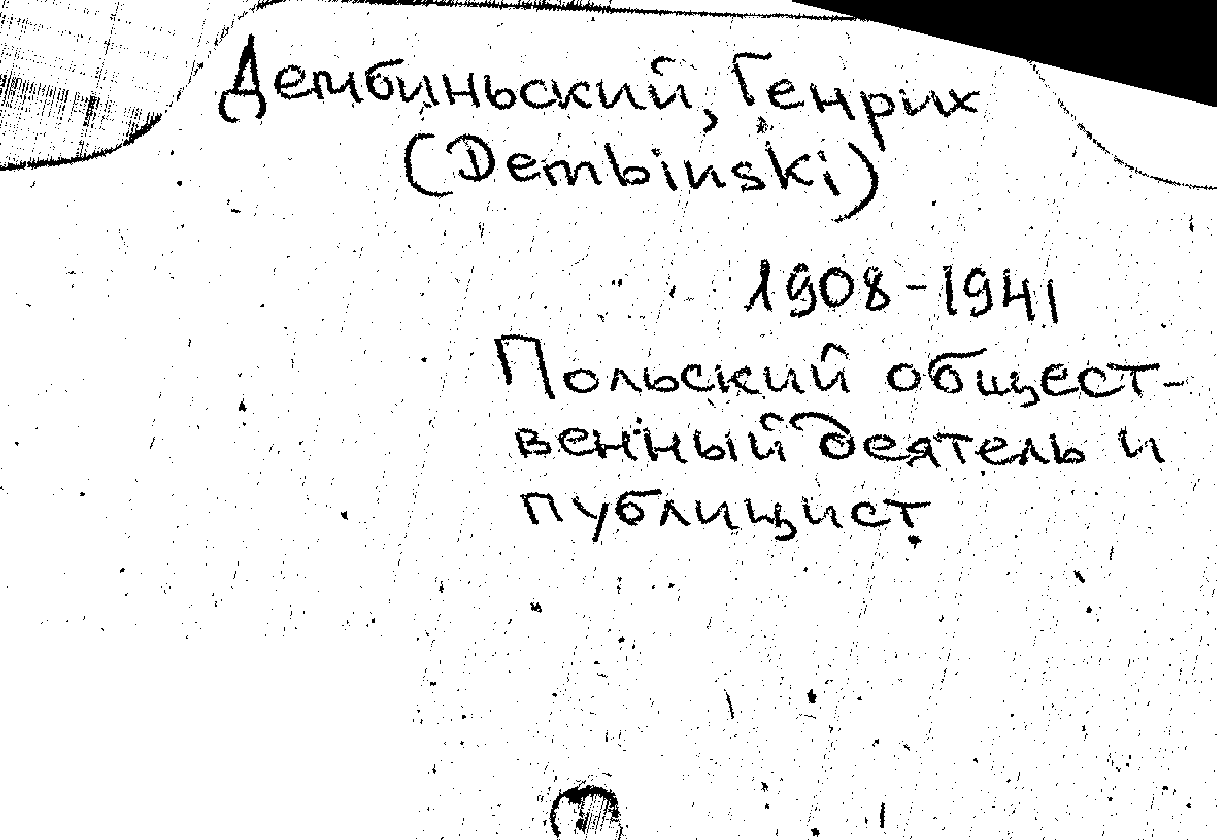 Дембиньский, Генрих
(Dembinski)
1908-1941
Польский общест-
венный деятель и
публицист.